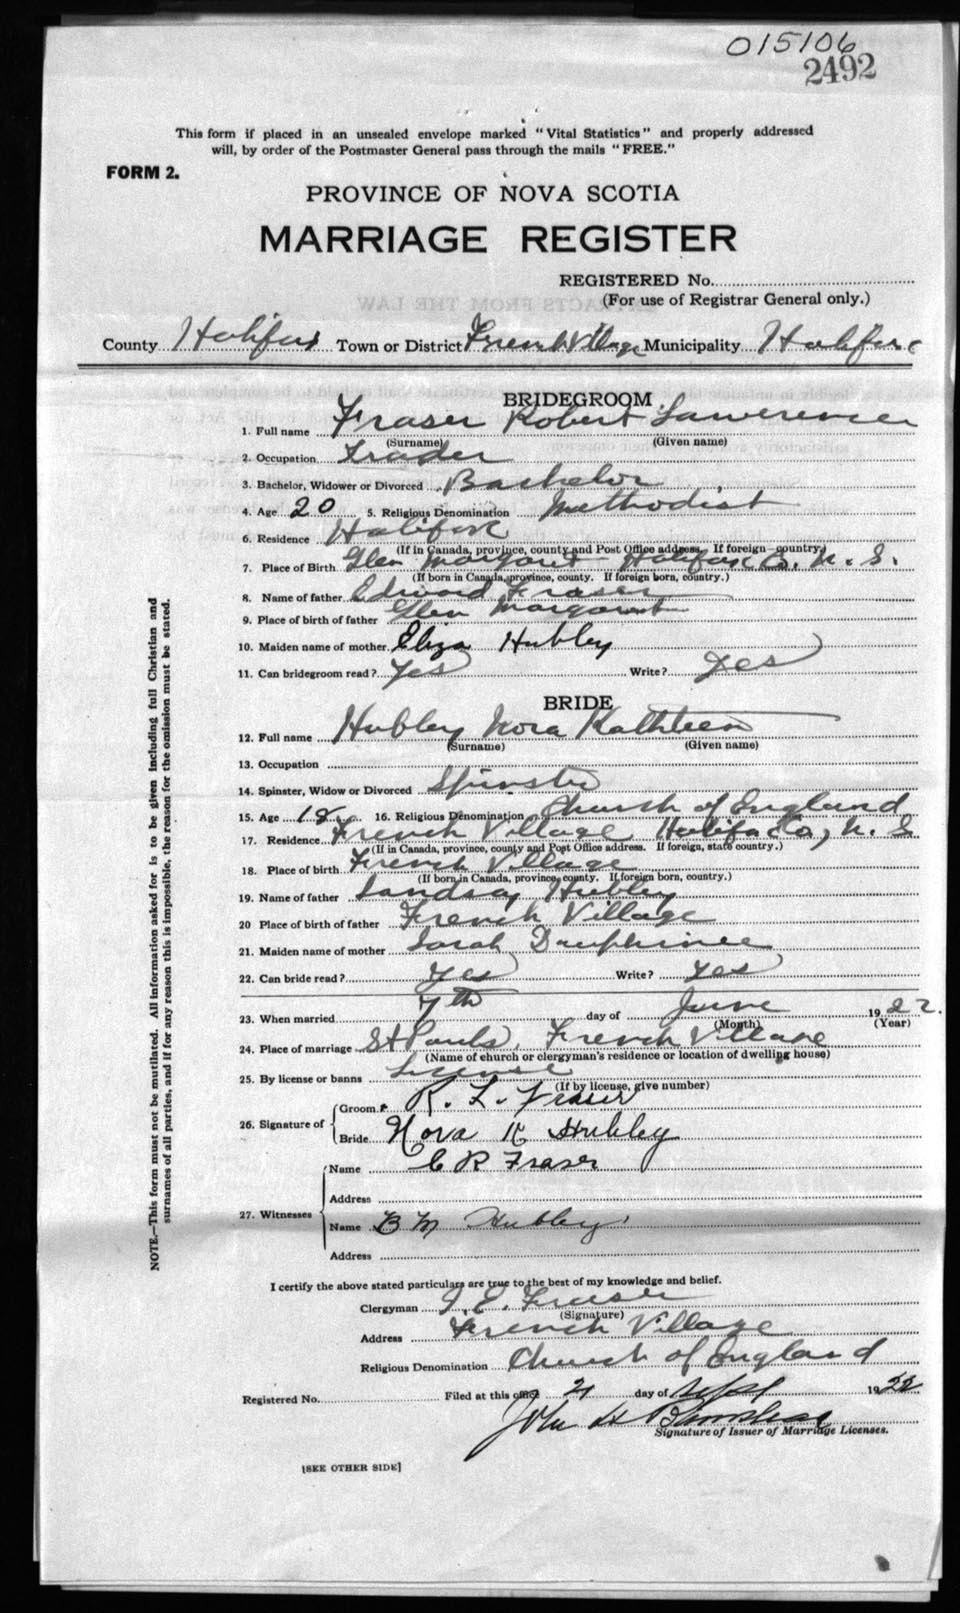 015106
2492
This form if placed in an unsealed envelope marked "Vital Statistics" and properly addressed
will, by order of the Postmaster General pass through the mails "FREE."
FORM 2.
PROVINCE OF NOVA SCOTIA
MARRIAGE REGISTER
REGISTERED No.
(For use of Registrar General only.)
County Halifax Town or District French Village Municipality Halifax
BRIDEGROOM
1. Full name Fraser Robert Lawerence
(Surname) (Given name)
2. Occupation Trader
3. Bachelor, Widower or Divorced Bachelor
4. Age 20 5. Religious Denomination Methodist
6. Residence Halifax
(If in Canada, province, county and Post Office address. If foreign country.)
7. Place of Birth Glen Margaret Halifax Co. N. S.
(If born in Canada, province, county. If foreign born, country.)
8. Name of father Edward Fraser
9. Place of birth of father Glen Margaret
10. Maiden name of mother Eliza Hubley
11. Can bridegroom read? Yes Write? Yes
BRIDE
12. Full name Hubley Nora Kathleen
(Surname) (Given name)
13. Occupation
14. Spinster, Widow or Divorced Spinster
15. Age 18 16. Religious Denomination Church of England
17. Residence French Village Halifax Co, N. S
(If in Canada, province, county and Post Office address. If foreign, state country.)
18. Place of birth French Village
(If born in Canada, province, county. If foreign born, country.)
19. Name of father Hubley
20 Place of birth of father French Village
21. Maiden name of mother Sarah Dauphinee
22. Can bride read? Yes Write? Yes
23. When married 7th day of June 1922.
(Month) (Year)
24. Place of marriage St Pauls, French Village
(Name of church or clergyman's residence or location of dwelling house)
25. By license or banns License
(If by license, give number)
26. Signature of
Groom R. L. Fraser
Bride Nora K Hubley
27. Witnesses
Name C R Fraser
Address
Name B M Hubley
Address
I certify the above stated particulars are true to the best of my knowledge and belief.
Clergyman Fraser
(Signature)
Address French Village
Religious Denomination Church of England
Registered No. Filed at this office 21 day of Sept 1922
John H
Signature of Issuer of Marriage Licenses.
[SEE OTHER SIDE]
NOTE.—This form must not be mutilated. All information asked for is to be given including full Christian and
surnames of all parties, and if for any reason this is impossible, the reason for the omission must be stated.